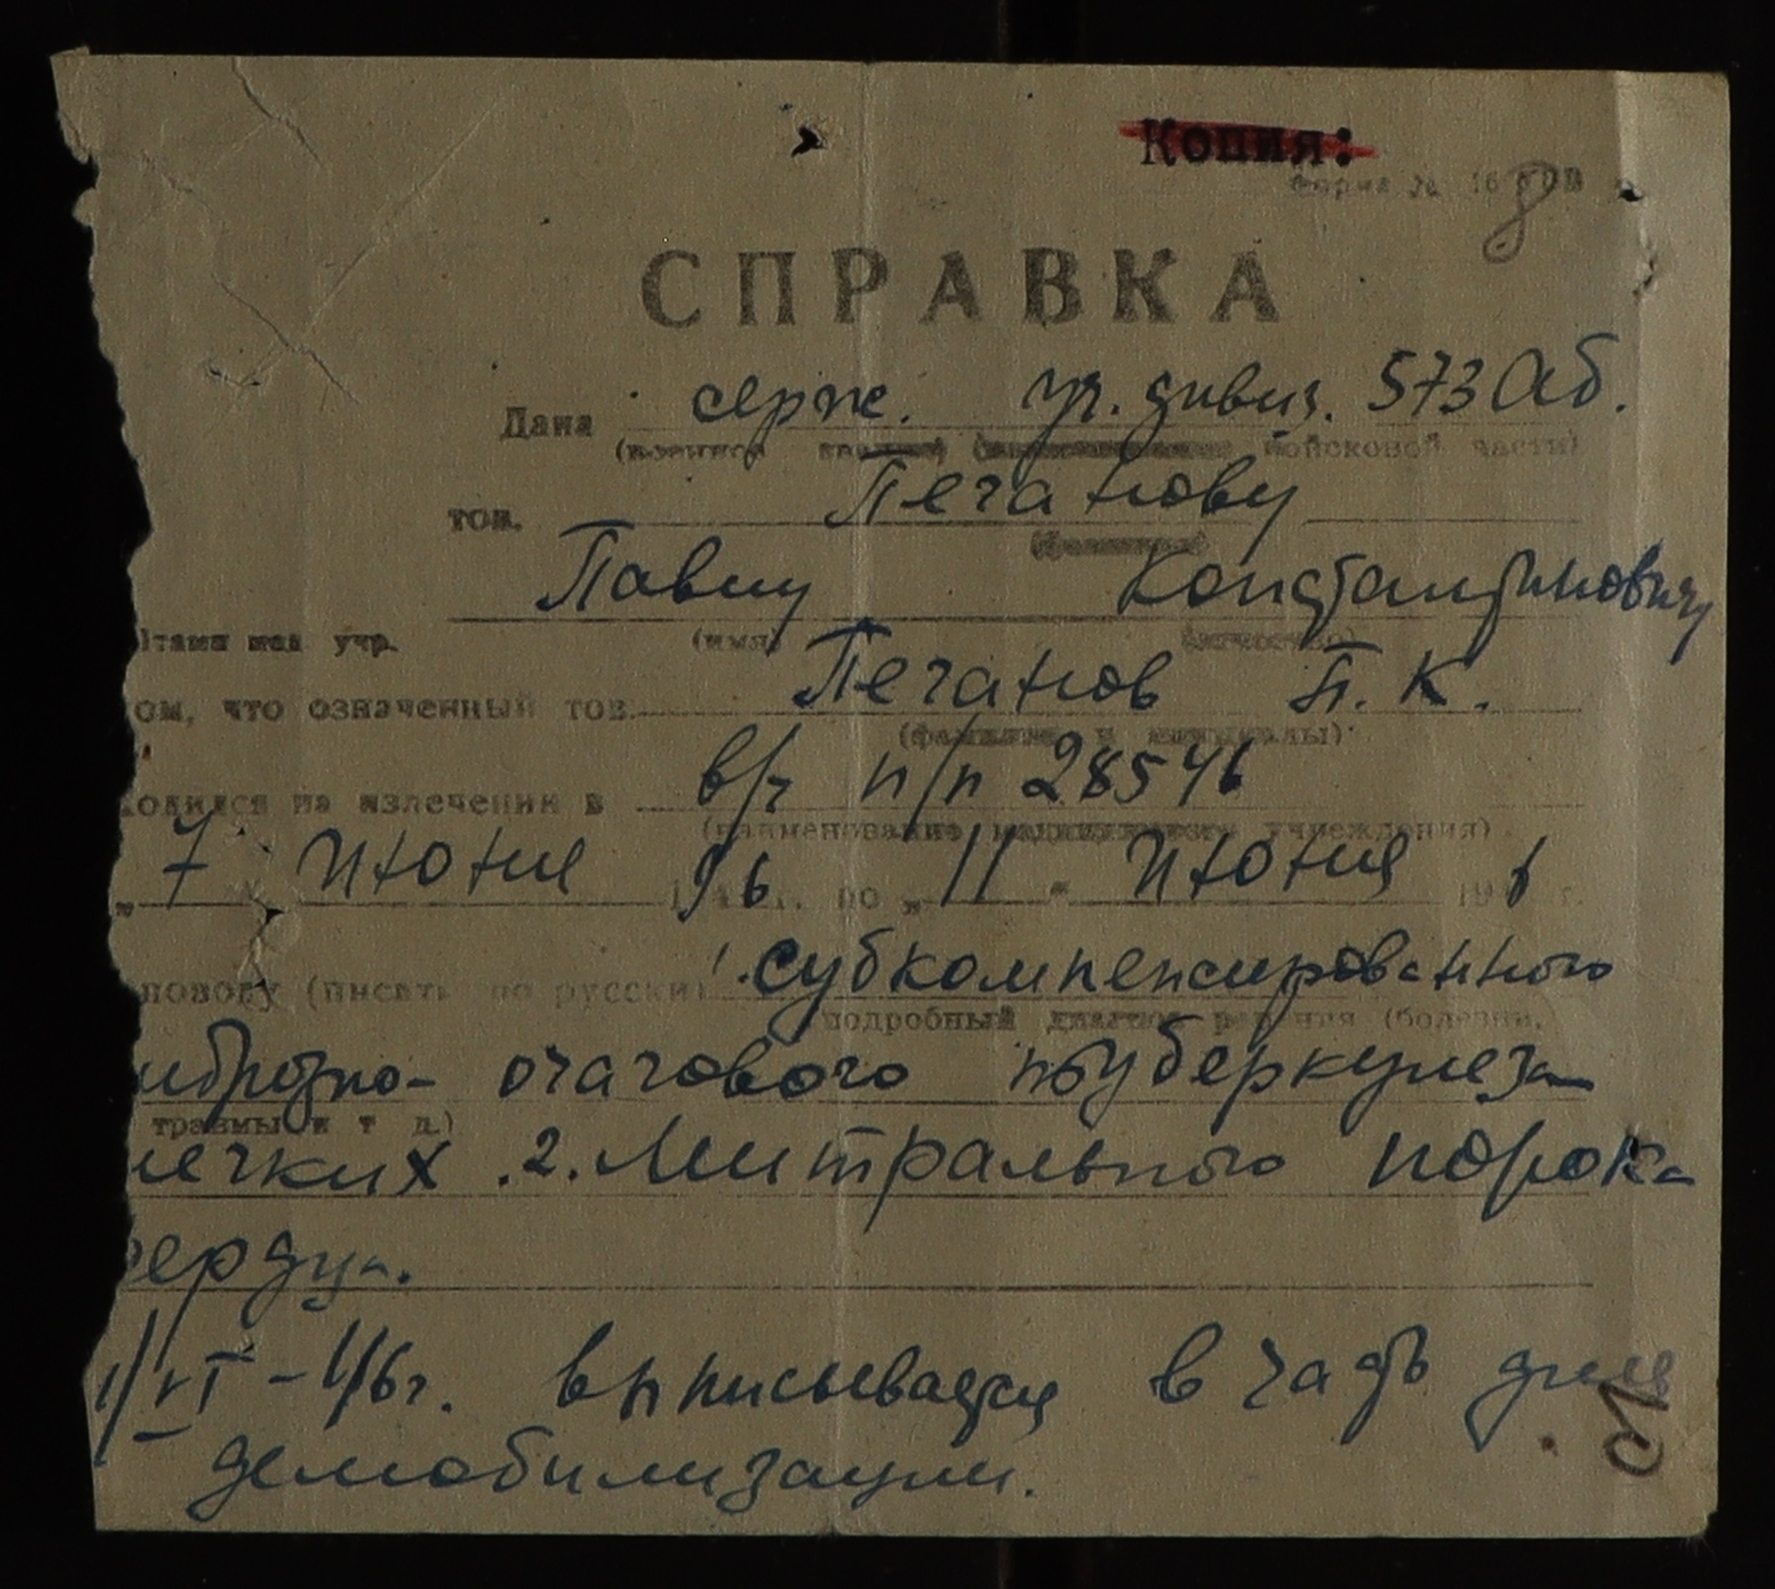 Копия:
Форма № 16
8
СПРАВКА
Дана серж. уч. дивиз. 573 Аб.
(военное звание) (наименование войсковой части)
тов. Печатнову
(фамилия)
Павлу Константиновичу
Штамп мед учр. (имя) (отчество)
ом, что означенный тов. Печатнов П. К.
(фамилия и инициалы)
ходился на излечении в в/ч п/п 28546
(наименование медицинского учреждения)
„ 7 июня 1946 г. по „ 11 " июня 1946 г.
поводу (писать по русски) 1. субкомпенсированного
подробный диагноз ранения (болезни,
иброзно- очагового туберкулеза
травмы и т д.)
легких. 2. Митрального порока
сердца.
11/VI - 46г. выписывается в часть для
демобилизации.